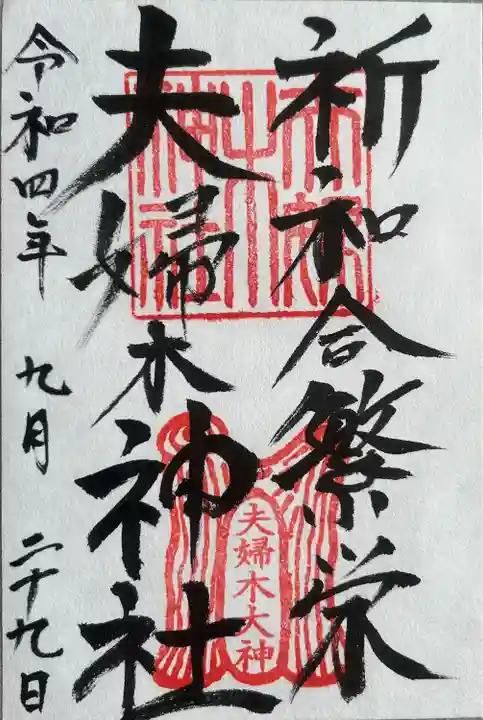 祈和合繁栄
夫婦木神社
夫婦木神社
夫婦木大神
令和四年 九月 二十九日